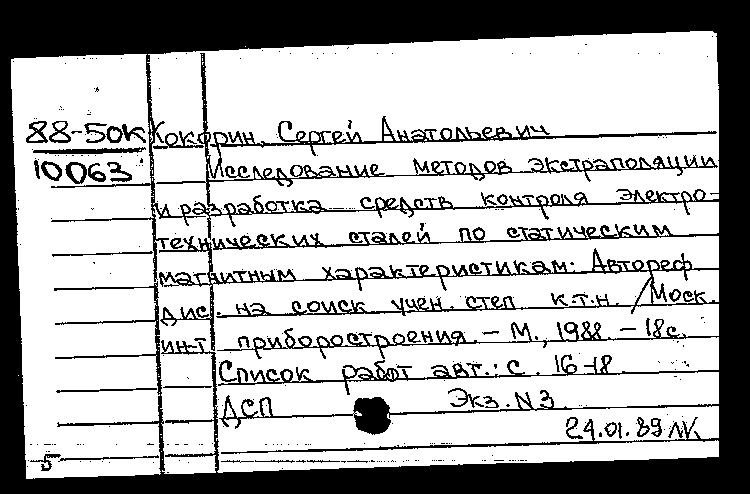 88-50к Кокорин, Сергей Анатольевич
10063 Исследование методов экстраполяции
и разработка средств контроля электро-
технических сталей по статическим
магнитным характеристикам: Автореф.
дис. на соиск. учен. степ. к.т.н. /Моск.
ин-т приборостроения. - М., 1988. - 18 с.
Список работ авт.: с. 16-18
ДСП Экз. N3
24.01.89 ЛК
5